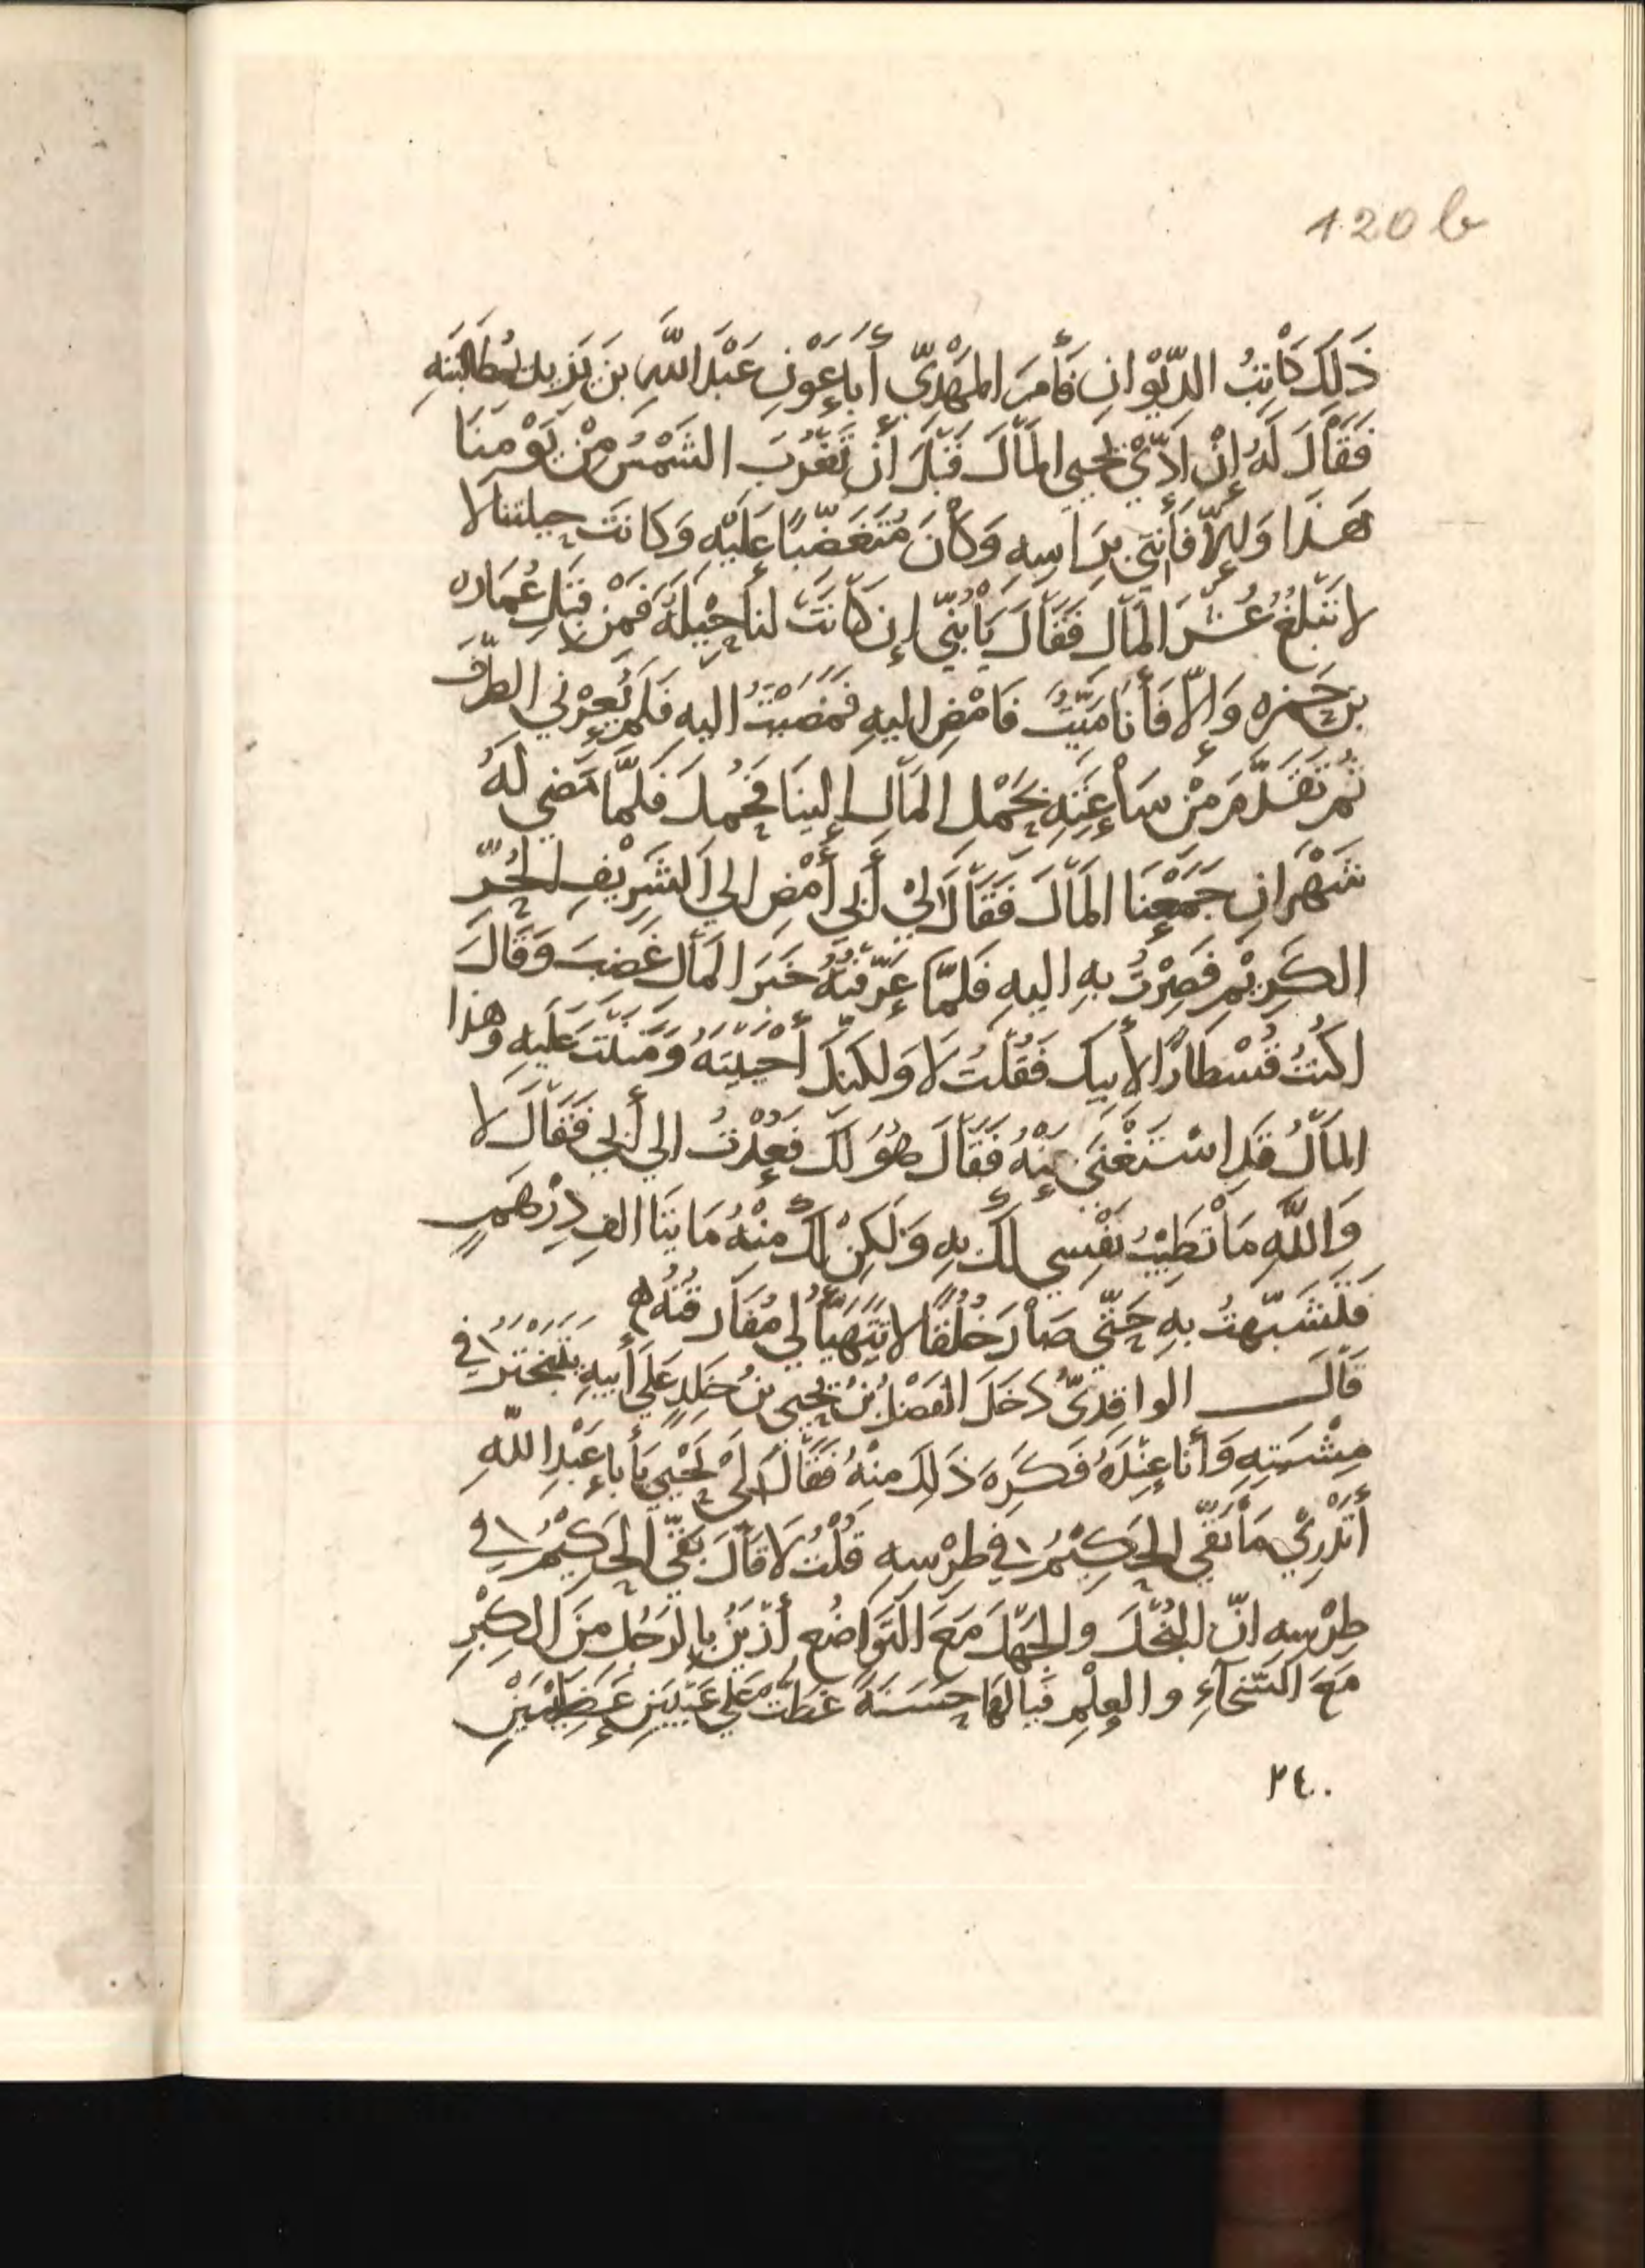 120 b
ذَلِكَ كَاتِبُ الدِّيْوَانِ فَأَمَرَ المَهْدِيّ أَبَا عَوْنِ عَبْدَ اللَّهِ بْنَ يَزِيدَ بِمُطَالَبَتِهِ
فَقَالَ لَهُ إِنْ اَدَّيْ يَحْيِي المَالَ قَبْلَ أَنْ تَغْرُبَ الشَمْسُ مِنْ يَوْمِنَا
هَذَا وَإِلَّا فَأْتِنِي بِرَاسِهِ وَكَانَ مُتَغَضِّبًا عَلَيْهِ وَكَانَتْ حِيلتنا لا
لا تَبْلُغُ عُشْرَ المَالِ فَقَالَ يَا بُنَيّ إِن كَانَتْ لَنَا حِيْلَةٌ فَمْن قِبَلِ عُمَارَه
بن حَمزه وَإِلّا فَأَنَا مَيِّتٌ فَامْضِ اليهِ فَمَضَيْتُ اليهِ فَلَم يُعِرْني الطَرْفَ
ثُمَ تَقَدَّمَ مِنْ سَاعَتِهِ بِحَمْلِ المَالِ إلينَا فَحُمِلَ فَلَمَّا مَضي لَهُ
شَهْرَانِ جَمَعْنَا المَالَ فَقَالَ لِيْ أَبي أَمْضِ الي الشَرِيْفِ الحُرّ
الكَرِيْمِ فَصِرْتُ بِهِ اليهِ فَلَمَّا عَرَّفْتُهُ خَبَرَ المَالِ غَضِبَ وَقَالَ
اكُنْتُ قُسْطَارًا لأبيكَ فَقُلْتُ لَا وَلكنكَ أَحْيَيْتَهُ وَمَنَنْتَ عَلَيهِ وَهَذا
المَالُ قَدِ اسْتَغْنَي عَنْهُ فَقَالَ هُوَ لَكَ فَعُدْتُ الي أَبي فَقَالَ لا
وَاللَّهِ مَا تَطِيْبُ نَفْسِي لَكَ بِهِ وَلَكِنْ لَكَ مِنْهُ مَايَتَا الفِ دِرْهَمٍ
فَتَشَبّهتُ بِهِ حَتّي صَارَ خُلُقًا لا تَتَهَيَّأُ لي مُفَارقَتُهُ ه
قَالَ الواقِدِيّ دَخَلَ الفَضْلُ بْنُ يَحْيي بْنُ خَلِدٍ عَلَي أَبيهِ يَتَبَخْتَرُ في
مِشْيَتِهِ وَأَنَا عِنْدَهُ فَكَرِهَ ذَلِكَ مِنْهُ فَقَالَ لِيْ يَحْيَي يَا بَا عَبْدِ اللَّهِ
أَتَدْرِيْ مَا بَقّي الحَكِيْمُ في طِرْسِهِ قُلْتُ لَا قَالَ بَقّي الحَكِيْمُ في
طِرْسِهِ انّ البُخْلَ والجَهْلَ مَعَ التَوَاضُعِ أَزْيَنُ بالرَجُل مِنَ الكِبْرِ
مَعَ السَخَآءِ والعِلْمِ فَيَا لَهَا حَسَنَةً غَطّتْ عَلي عَيْبَيْنِ عَظِيْمَيْنِ
٢٤٠